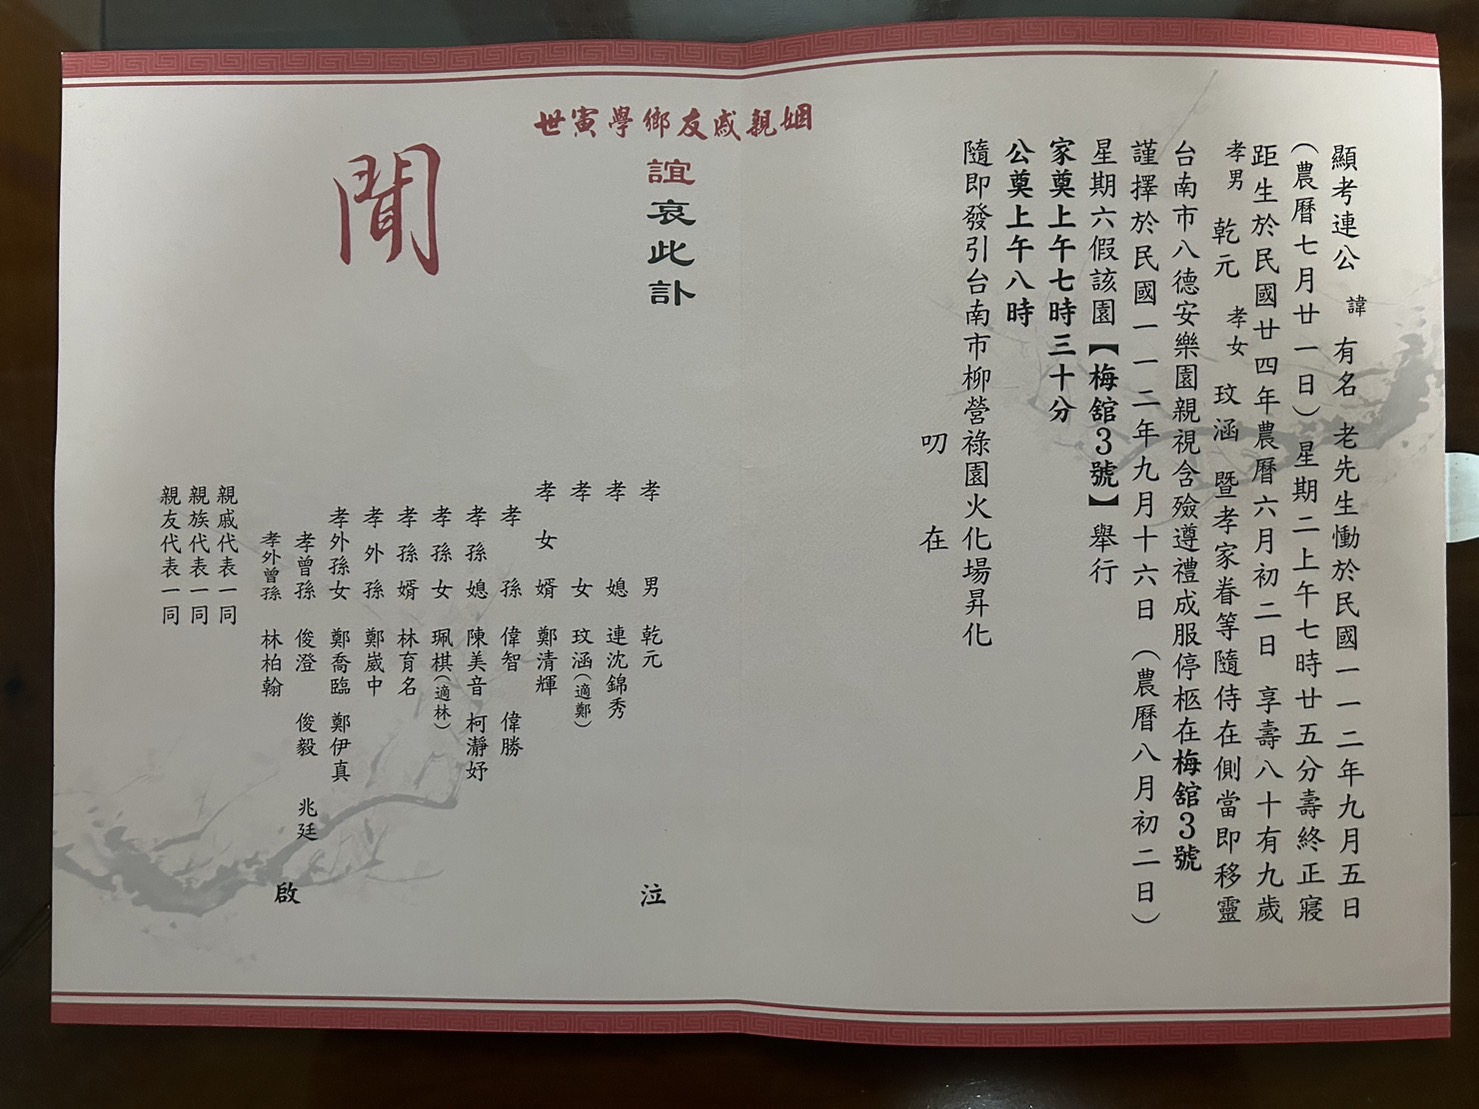 顯考連公 諱 有名 老先生慟於民國一一二年九月五日
(農曆七月廿一日)星期二上午七時廿五分壽終正寢
距生於民國廿四年農曆六月初二日 享壽八十有九歲
孝男 乾元 孝女 玟涵 暨孝家眷等隨侍在側當即移靈
台南市八德安樂園親視含殮遵禮成服停柩在梅舘3號
謹擇於民國一一二年九月十六日(農曆八月初二日)
星期六假該園【梅舘3號】舉行
家奠上午七時三十分
公奠上午八時
隨即發引台南市柳營祿園火化場昇化
叨 在
姻親戚友鄉學寅世
誼哀此訃
聞
孝男 乾元 泣
孝媳 連沈錦秀
孝女 玟涵(適鄭)
孝女婿 鄭清輝
孝孫 偉智 偉勝
孝孫媳 陳美音 柯瀞妤
孝孫女 珮棋(適林)
孝孫婿 林育名
孝外孫 鄭崴中
孝外孫女 鄭喬臨 鄭伊真
孝曾孫 俊澄 俊毅 兆廷
孝外曾孫 林柏翰 啟
親戚代表一同
親族代表一同
親友代表一同